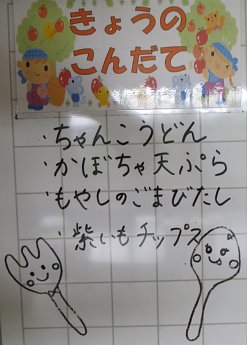 きょうの
こんだて
・ちゃんこうどん
・かぼちゃ天ぷら
・もやしのごまびたし
・紫いもチップス